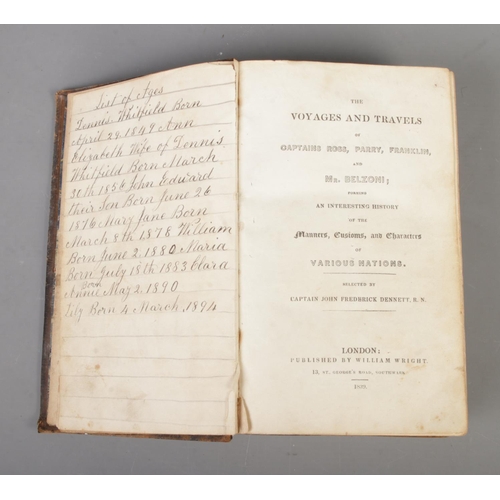 List of Ages
Dennis Whitfield Born
April 29. 1849 Ann
Elizabeth Wife of Dennis
Whitfield Born March
30th 1856 John Edward
their Son Born June 26
1876 Mary Jane Born
March 8th 1878 William
Born June 2. 1880 Maria
Born July 18th 1883 Clara
Annie Born May 2. 1890
Lily Born 4 March, 1894
THE
VOYAGES AND TRAVELS
OF
CAPTAINS ROSS, PARRY, FRANKLIN,
AND
MR. BELZONI;
FORMING
AN INTERESTING HISTORY
OF THE
Manners, Customs, and Characters
OF
VARIOUS NATIONS.
SELECTED BY
CAPTAIN JOHN FREDERICK DENNETT, R.N.
LONDON:
PUBLISHED BY WILLIAM WRIGHT,
ST. GEORGE'S ROAD, SOUTHWARK.